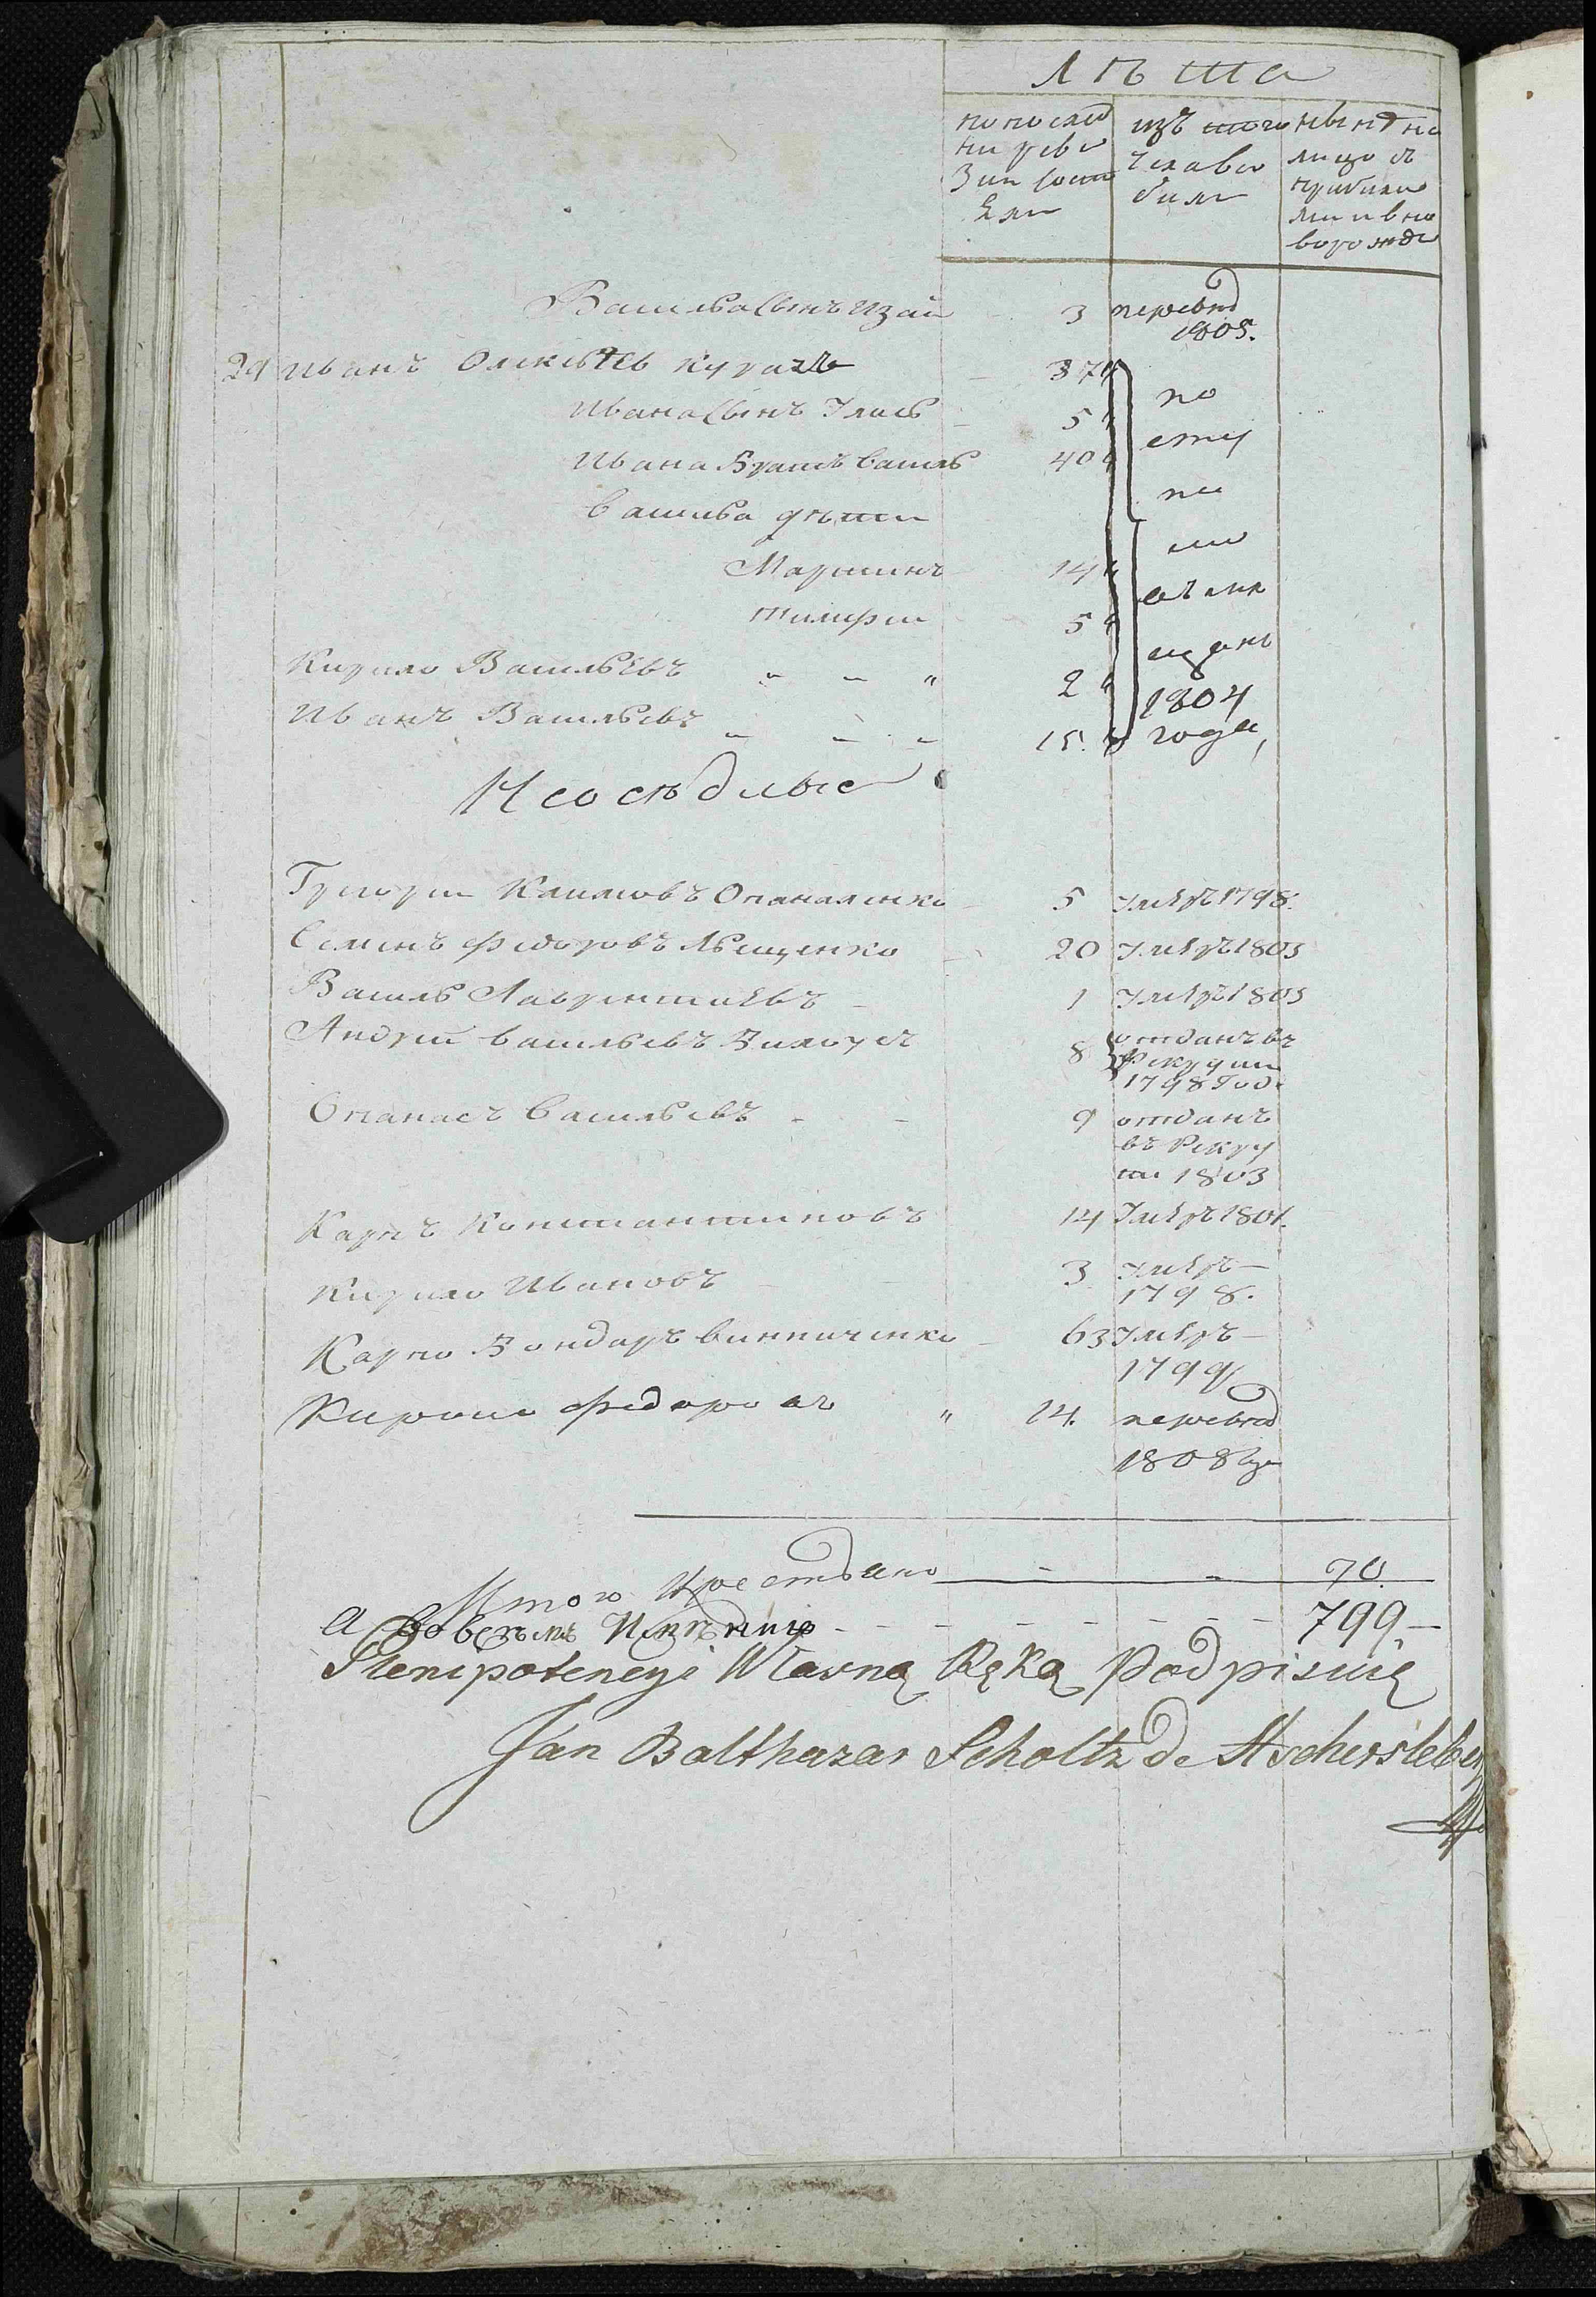 Лѣта
по послѣд ней реви зии состо яли
изъ того числа вы были
нынѣ на лицо съ прибылы ми и вно ворожде
Василя Сынъ Изай 3 перевед 1805.
29 Иванъ Олексѣев Кугачъ 37
Ивана Сынъ Илько 5
Ивана Братъ Василь 40
Василя дѣти
Мартинъ 14
Тимофей 5
Кирило Васильевъ 2
Иванъ Васильевъ 15.
по 1804 года
Неосѣдлые
Григорий Климовъ Опанасенко 5 умеръ 1798.
Семенъ Федоровъ Лещенко 20 умеръ 1803
Василь Лаврентиевъ 1 умеръ 1803
Андрей Васильевъ Билоусъ 8 отданъ въ Рекруты 1798 Год.
Опанасъ Васильевъ 9 отданъ въ Рекру ты 1803
Карпъ Константиновъ 14 умеръ 1801.
Кирило Ивановъ 3 умеръ 1798.
Карпо Бондаръ Винниченко 63 умеръ 1799
Кирило Федоровъ 14. перевед 1808
Итого Крестьянъ 70.
а во всемъ Имѣнию 799
Plenipotencyi Własną Ręką Podpisuię
Jan Balthazar Scholtz de Aschersleben